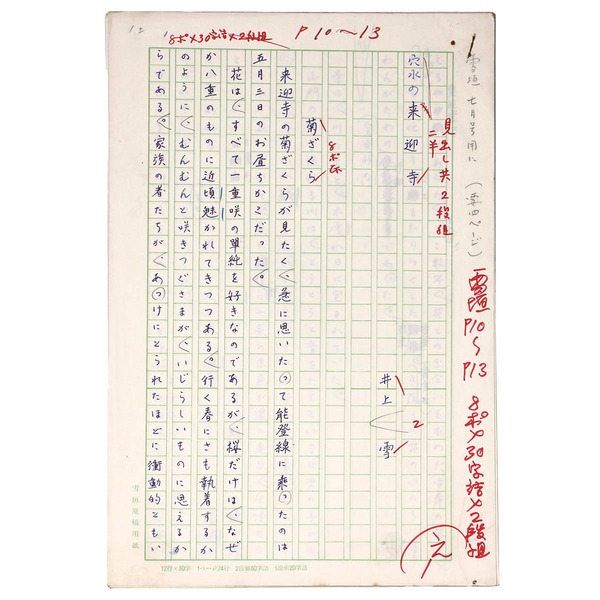 P10〜13
8ポ×30字詰×2段組
雪垣 七月号用に (要四ページ)
雪垣 P10〜P13 8ポ×30字詰×2段組
見出し共2段組
二半
穴水の来迎寺
井上 雪
2
菊ざくら
8ポ
来迎寺の菊ざくらが見たく、急に思いたって能登線に乗ったのは
五月三日のお昼ちかくだった。
花は、すべて一重咲の単純を好きなのであるが、桜だけは、なぜ
か八重のものに近頃魅かれてきつつある。行く春にさも執着するか
のように、むんむんと咲きつぐさまが、いじらしいものに思えるか
らである。家族の者たちが、あっけにとられたほどに衝動的ともい
え
雪垣原稿用紙